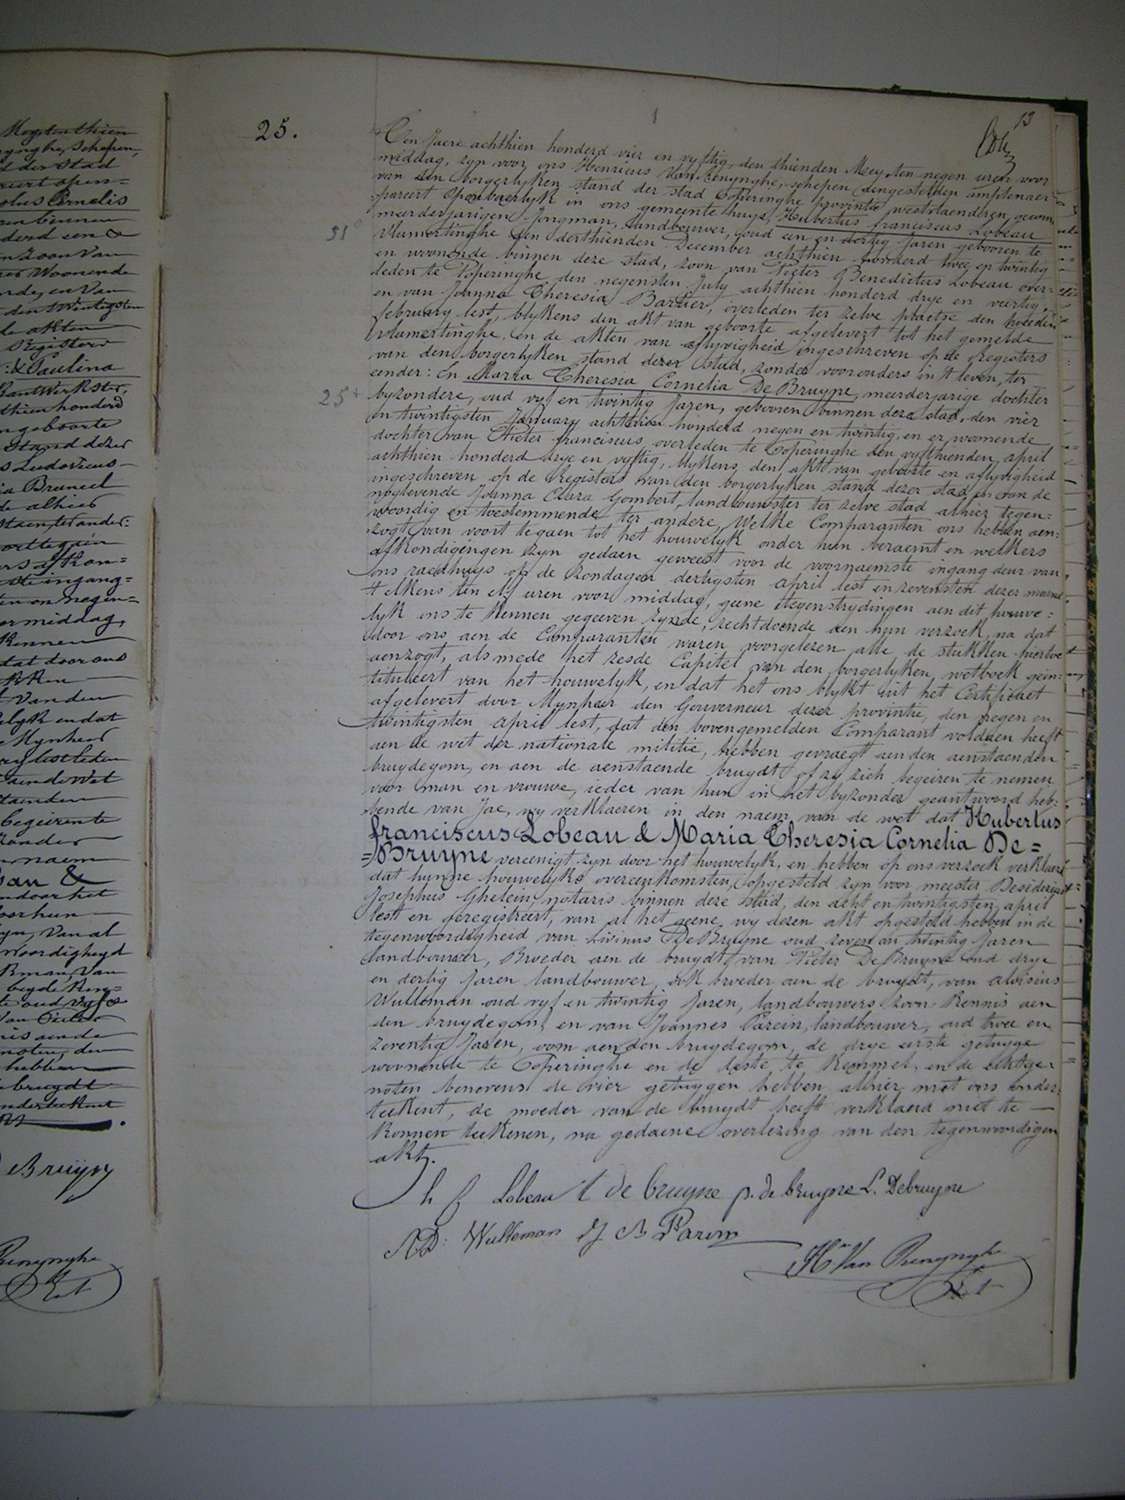 Meytenthien
Schepen,
der Stad
Cornelis
binnen
zoon van
Woonende
en Van
den twintigsten
akten
Registers
& Paulina
thien honderd
geboorte
Stand dezer
Ludovicus
Bruneel
alhier
ter ander:
middag,
Kennen
dat door ons
Van den
en dat
Mynheer
aende Wet
begeeren te
naem
&
door het
Van al
woordigheyd
Van
oud vyf &
hebben
bruydt
onderteekent
De Bruyne
Renynghe
13
25.
Ten Jaere achthien honderd vier en vyftig, den thienden Mey, ten negen uren voor
middag, zyn voor ons Henricus Van Renynghe, schepen aingestelden amptenaer
van den borgerlyken stand der stad Poperinghe provintie westvlaenderen, gecom
pareert openbaerlyk in ons gemeente huys, Hubertus franciscus Lobeau
meerderjarigen Jongman, landbouwer, oud een en dertig Jaren gebooren te
31
Vlamertinghe den derthienden December achthien honderd twee en twintig
en woonende binnen deze stad, zoon van Pieter Benedictus Lobeau over-
leden te Poperinghe den negensten July achthien honderd drye en veertig,
en van Joanna Theresia Bartier, overleden ter zelve plaetse den tweeden
february lest, blykens den akt van geboorte afgelevert tot het gemelde
Vlamertinghe en de akten van aflyvigheid ingeschreven op de registers
van den borgerlyken stand dezer stad, zonder voorouders in 't leven, ter
eender: En Maria Theresia Cornelia De Bruyne, meerderjarige dochter
25
byzondere, oud vyf en twintig Jaren, gebooren binnen deze stad, den vier
en twintigsten January achthien honderd negen en twintig, en er woonende
dochter van Pieter franciscus overleden te Poperinghe den vyfthienden, april
achthien honderd drye en vyftig, blykens den akt van geboorte en aflyvigheid
ingeschreven op de Registers van den borgerlyken stand dezer stad, en van de
noglevende Joanna Clara Gombert, landbouwster ter zelve stad alhier tegen:
woordig en toestemmende ter andere, Welke Comparanten ons hebben aen=
zogt van voort te gaen tot het houwelyk onder hun beraemt en welkers
afkondigingen zyn gedaen geweest voor de voornaemste ingang deur van
ons raedhuys op de zondagen dertigsten april lest en zevensten dezer maend
t'elkens ten elf uren voor middag, geene tegenstrydingen aen dit houwe:
lyk ons te Kennen gegeeven zynde, rechtdoende aen hun verzoek, na dat
door ons aen de Comparanten waren voorgelezen alle de stukken hiertoe
aenzogt, als mede het zesde Capitel van den borgerlyken, wetboek gein:
tituleert van het houwelyk, en dat het ons blykt uit het Certificaet
afgelevert door Mynheer den Gouverneur dezer provintie, den negen en
twintigsten april lest, dat den bovengemelden Comparant voldaen heeft
aen de wet der nationale militie, hebben gevraegt aen den aenstaenden
bruydegom, en aen de aenstaende bruydt of zy zich begeiren te nemen
voor man en vrouwe, ieder van hun in het byzonder geantwoord heb:
bende van Jae, wy verklaeren in den naem van de wet dat Hubertus
franciscus Lobeau & Maria Theresia Cornelia De=
=Bruyne vereenigt zyn door het houwelyk, en hebben op ons verzoek verklaert
dat hunne houwelyks overeenkomsten opgesteld zyn voor meester Desiderius
Josephus Ghelein, notaris binnen deze Stad, den acht en twintigsten april
lest en geregistreert, van al het geene, wy dezen akt opgesteld hebben in de
tegenwoordigheid van Livinus De Bruyne oud zeven en twintig Jaren
landbouwer, Broeder aen de bruydt, van Pieter De Bruyne oud drye
en dertig Jaren landbouwer, ook broeder aen de bruydt, van aloisius
Wulleman oud vyf en twintig Jaren, landbouwers zoon Kennis aen
den bruydegom, en van Joannes Parein, landbouwer, oud twee en
zeventig Jaren, oom aen den bruydegom, de drye eerste getuyge
woonende te Poperinghe en de leste te Kemmel, en de aktge-
noten benevens de vier getuygen hebben alhier met ons onder
teekent, de moeder van de bruydt heeft verklaerd niet te
Konnen teekenen, na gedaene overlezing van den tegenwoordigen
akt.
h f Lobeau t de bruyne p. de bruyne L. Debruyne
Wulleman J B Parein
Hri Van Renynghe